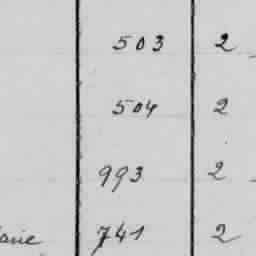 503 2
504 2
993 2
741 2